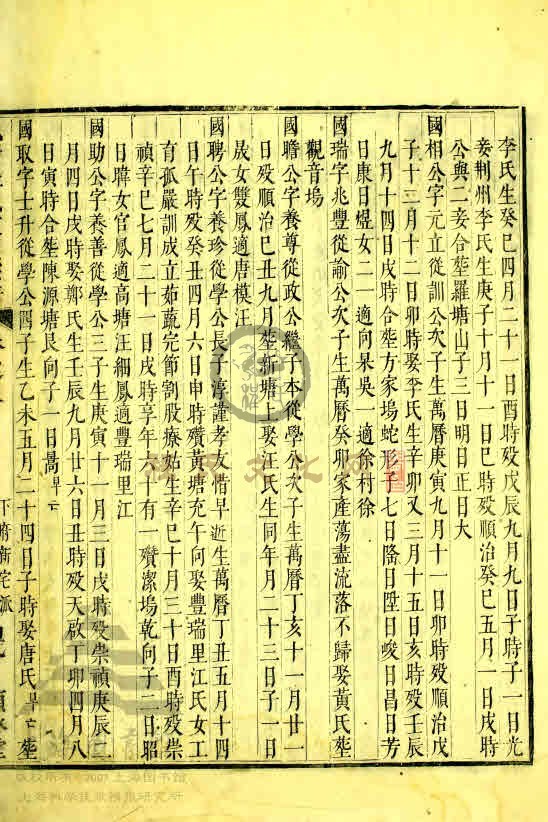 李氏生癸巳四月二十一日酉時殁戊辰九月九日子時子一日光
妾荆州李氏生庚子十月十一日巳時殁順治癸巳五月一日戌時
公與二妾合塟羅塘山子三日明日正日大
國相公字元立從訓公次子生萬曆庚寅九月十一日卯時殁順治戊
子十二月十二日卯時娶李氏生辛卯又三月十五日亥時殁壬辰
九月十四日戌時合塟方家塢蛇形子七日陞日陞日峻日昌日芳
日康日煜女二一適向杲吳一適徐村徐
國瑞字兆豐從諭公次子生萬曆癸卯家產蕩盡流落不歸娶黃氏塟
觀音塢
國瞻公字養尊從政公繼子本從學公次子生萬曆丁亥十一月廿一
日殁順治己丑九月塟新塘上娶汪氏生同年月二十三日子一日
晟女雙鳳適唐模汪
國聘公字養珍從學公長子淳謹孝友惜早逝生萬曆丁丑五月十四
日午時殁癸丑四月六日申時殯黃塘充午向娶豐瑞里江氏女工
育孤嚴訓成立茹蔬完節割股療姑生辛巳十月三十日酉時殁崇
禎辛巳七月二十一日戌時享年六十有一殯潔塢乾向子二日昭
日暐女官鳳適高塘汪細鳳適豐瑞里江
國助公字養善從學公三子生庚寅十一月三日戌時殁崇禎庚辰二
月四日戌時娶鄭氏生壬辰九月廿六日丑時殁天啟丁卯四月八
日寅時合塟陳源塘艮向子一日暠早亡
國取字士升從學公四子生乙未五月二十四日子時娶唐氏早亡塟
下府新宅派
版权所有©2007上海图书馆
上海科学技术情报研究所